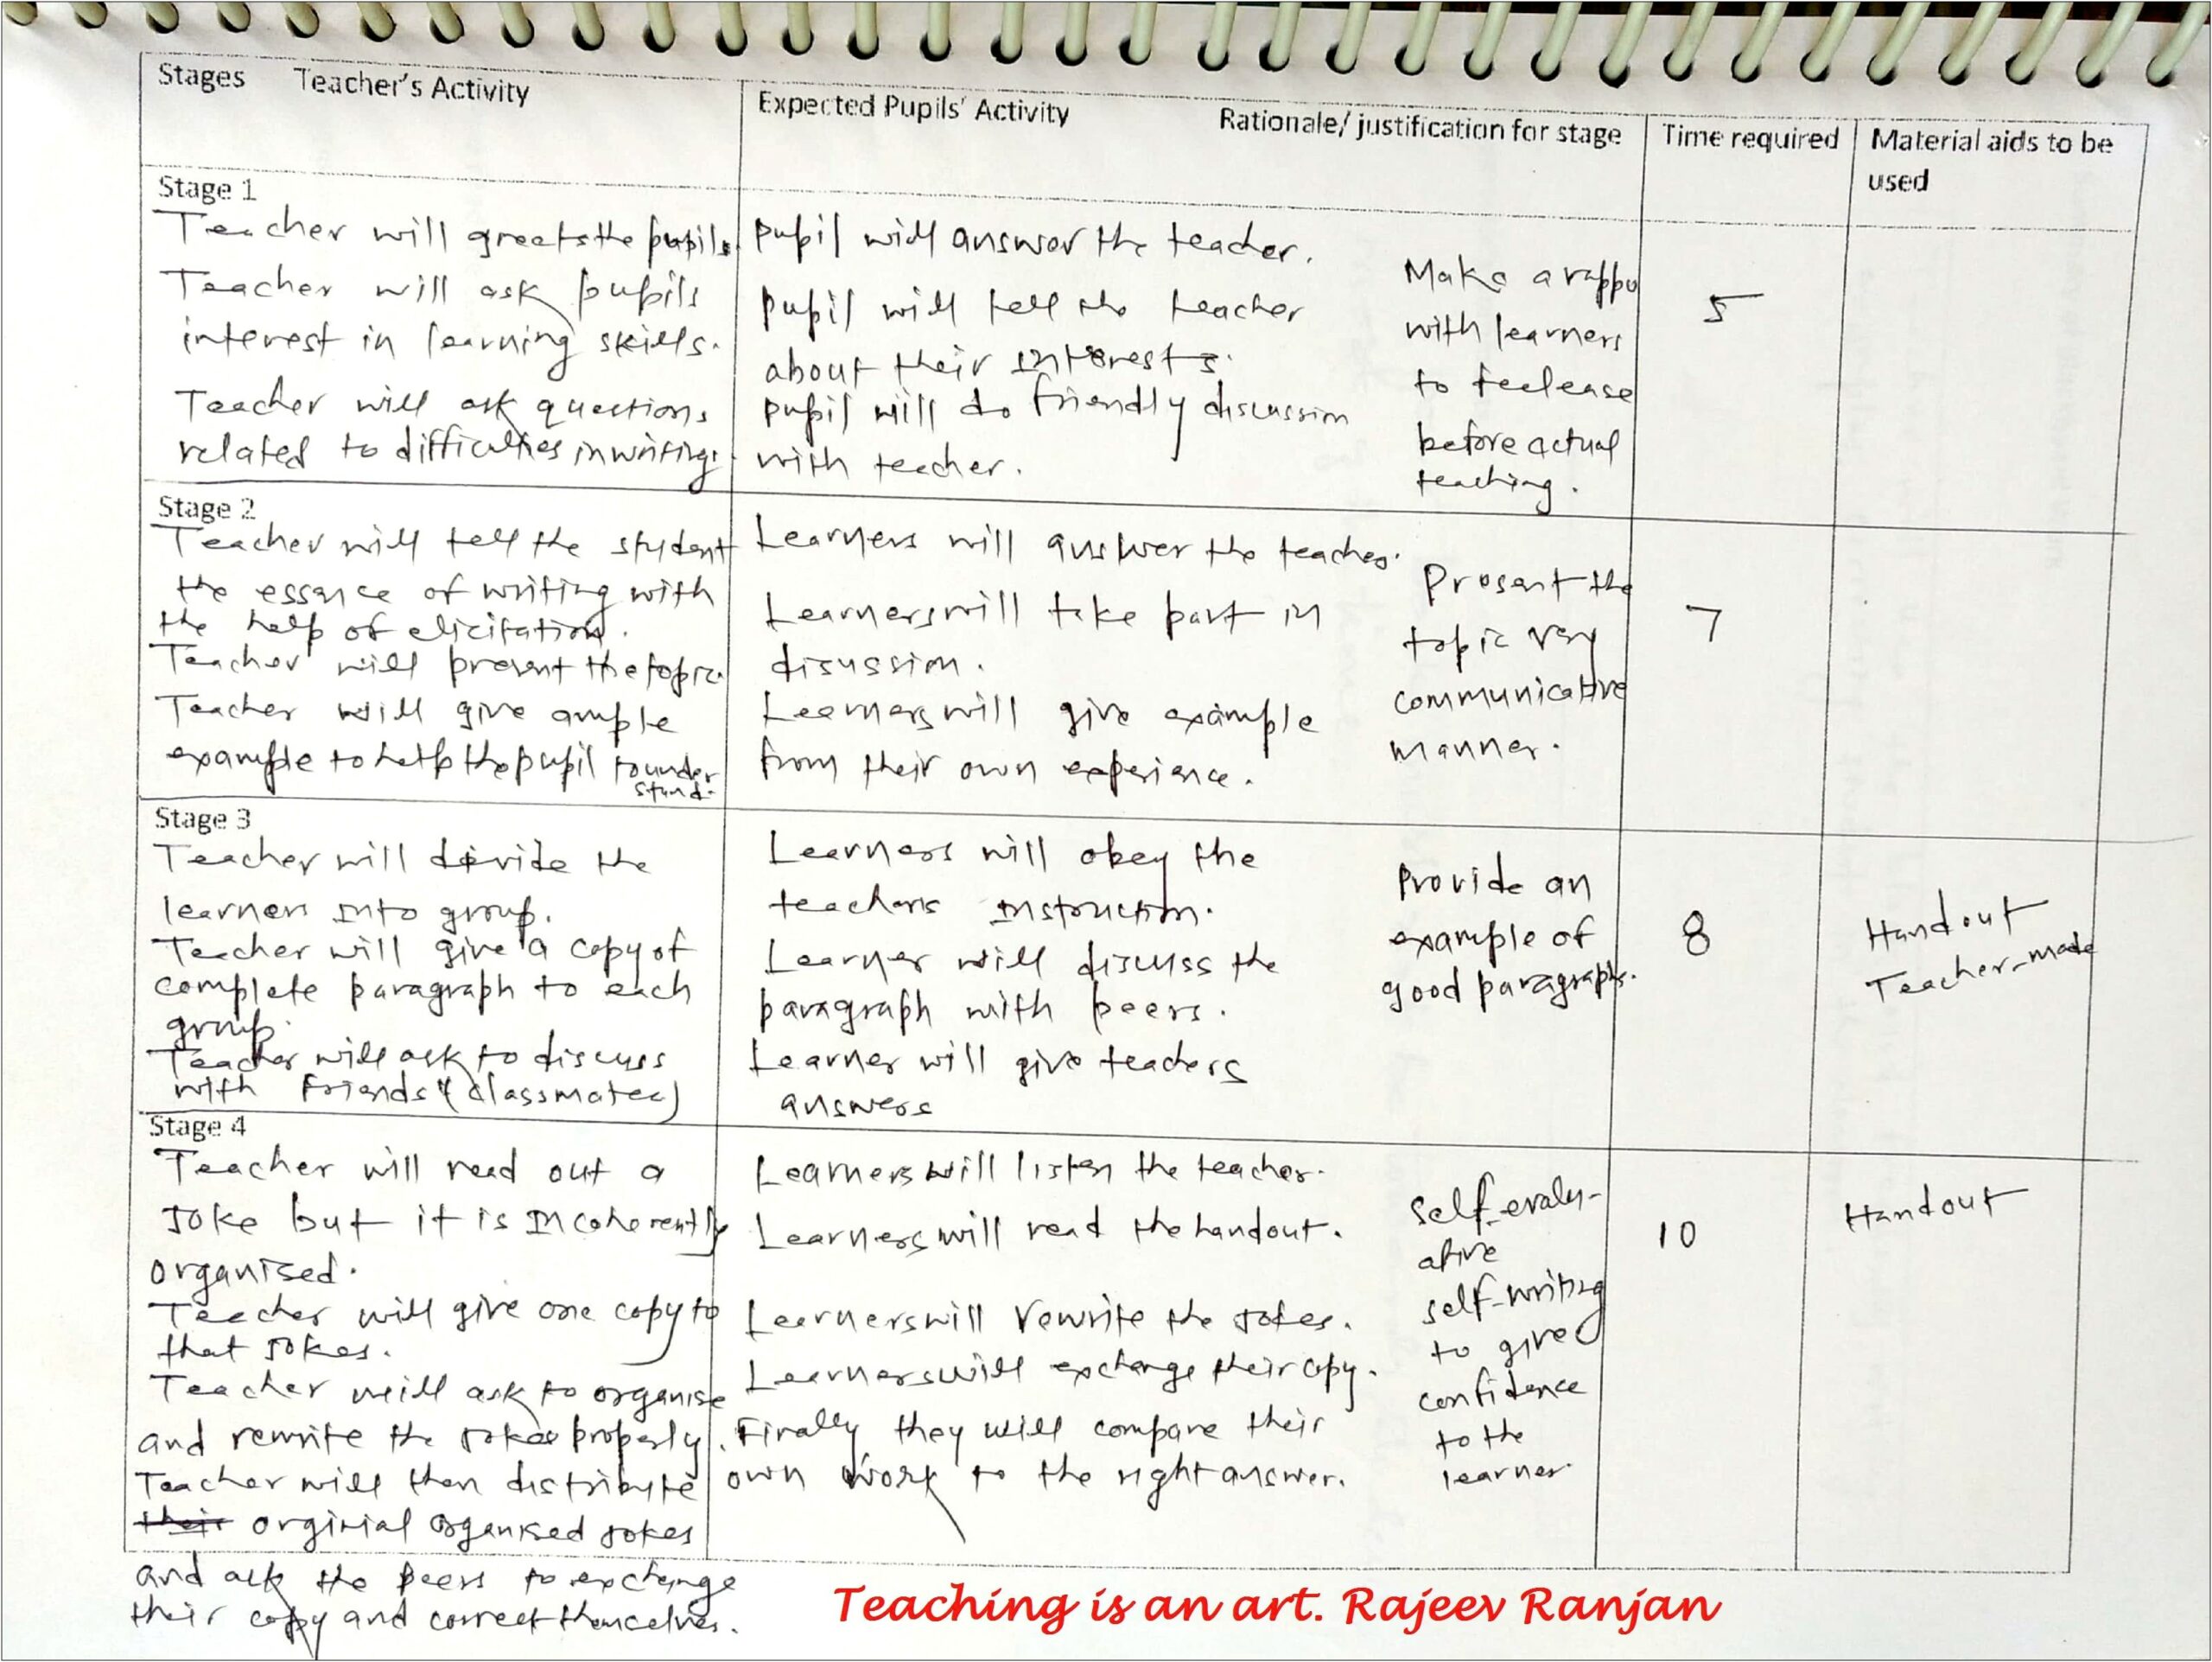 Stages Teacher's Activity
Expected Pupils' Activity
Rationale/ justification for stage
Time required
Material aids to be
used
Stage 1
Teacher will greets the pupils.
Teacher will ask pupils
interest in learning skills.
Teacher will ask questions
related to difficulties in writing.
Pupil will answer the teacher.
Pupil will tell the teacher
about their interests.
Pupil will do friendly discussion
with teacher.
Make a rappo
with learners
to feel ease
before actual
teaching.
5
Stage 2
Teacher will tell the student
the essance of writing with
the help of elicitation.
Teacher will present the topic.
Teacher will give ample
example to help the pupil to under
stand.
Learners will answer the teacher.
Learners will take part in
disussion.
Learners will give example
from their own experience.
Present the
topic very
communicative
manner.
7
Stage 3
Teacher will divide the
learners into group.
Teacher will give a copy of
complete paragraph to each
group.
Teacher will ask to discuss
with friends (classmates)
Learners will obey the
teachers instruction.
Learner will discuss the
paragraph with peers.
Learner will give teachers
answers
Provide an
example of
good paragraph.
8
Handout
Teacher-made
Stage 4
Teacher will read out a
joke but it is incoherently
organised.
Teacher will give one copy to
that jokes.
Teacher will ask to organise
and rewrite the jokes properly.
Teacher will then distribute
their orginial organised jokes
and ask the peers to exchange
their copy and correct themselves.
Learners will listen the teacher.
Learners will read the handout.
Learners will rewrite the jokes.
Learners will exchange their copy.
Finally they will compare their
own work to the right answer.
Self-evalu-
ative
self-writing
to give
confidence
to the
learner.
10
Handout
Teaching is an art. Rajeev Ranjan